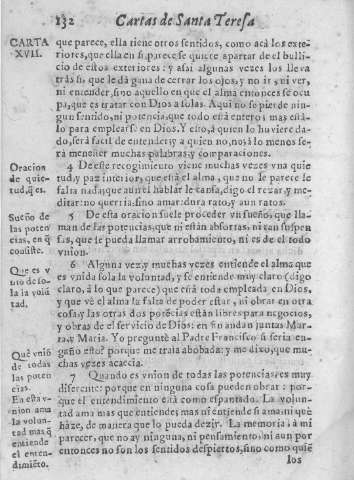 132 Cartas de Santa Teresa
CARTA
XVII.
que parece, ella tiene otros sentidos, como acà los exte-
riores, que ella en si parece se quiere apartar de el bulli-
cio de estos exteriores: y assi algunas vezes los lleva
tràs si, que le dà gana de cerrar los ojos, y no ir, ni ver,
ni entender, sino aquello en que el alma entonces se ocu
pa, que es tratar con Dios à solas. Aqui no se pierde nin-
gun sentido, ni potencia, que todo està entero; mas està-
lo para emplearse en Dios. Y esto, à quien lo huviere da-
do, serà facil de entender; y a quien no, no; à lo menos se-
rà menester muchas palabras, y comparaciones.
Oracion
de quie-
tud, q̃ es.
4 De este recogimiento viene muchas vezes vna quie
tud, y paz interior, que està el alma, que no le parece le
falta nada; que aun el hablar le cansa, digo el rezar, y me-
ditar: no querria sino amar: dura rato, y aun ratos.
Sueño de
las poten
cias, en q̃
consiste.
5 De esta oracion suele proceder vn sueño, que lla-
man de las potencias, que ni están absortas, ni tan suspen
sas, que se pueda llamar arrobamiento, ni es de el todo
vnion.
Que es v
nio de so-
la la volũ
tad.
6 Alguna vez, y muchas vezes entiende el alma que
es vnida sola la voluntad, y se entiende muy claro (digo
claro, à lo que parece) que està toda empleada en Dios,
y que vè el alma la falta de poder estar, ni obrar en otra
cosa; y las otras dos potẽcias estàn libres para negocios,
y obras de el servicio de Dios: en fin andan juntas Mar-
ta, y Maria. Yo preguntè al Padre Francisco si seria en-
gaño esto? porque me traia abobada; y me dixo, que mu-
chas vezes acaecia.
Què vniõ
de todas
las poten
cias.
En esta v-
nion ama
la volun-
tad mas q̃
entiende
el enten-
dimiẽto.
7 Quando es vnion de todas las potencias, es muy
diferente: porque en ninguna cosa pueden obrar: por-
que el entendimiento està como espantado. La volun-
tad ama mas que entiende; mas ni entiende si ama, ni què
hàze, de manera que lo pueda dezir. La memoria, à mi
parecer, que no ay ninguna, ni pensamiento; ni aun por
entonces no son los sentidos despiertos, sino como quiẽ
los